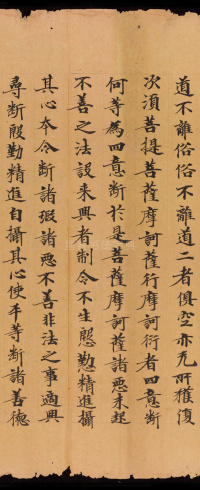 道不離俗俗不離道二者俱空亦无所獲復
次須菩提菩薩摩訶薩行摩訶衍者四意斷
何等為四意斷於是菩薩摩訶薩諸惡未起
不善之法設未興者制令不生慇懃精進攝
其心本令斷諸瑕諸惡不善非法之事適興
尋斷慇勤精進自攝其心使平等斷諸善德